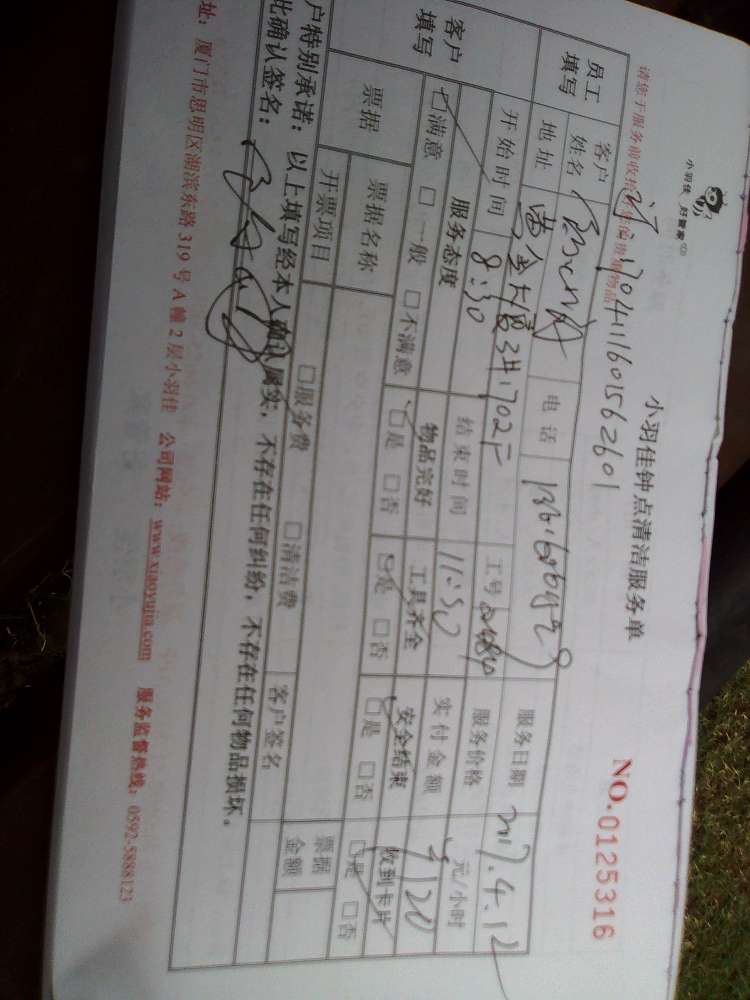 小羽佳 好管家
小羽佳钟点清洁服务单
NO.0125316
请您于服务前收拾好您的贵重物品
170411601562601
员工填写
客户姓名
电话
服务日期 2017.4.12
地址 黄金大厦3#1702
工号
服务价格 元/小时
开始时间 8:30
结束时间 11:30
实付金额 ¥120
客户填写
服务态度
物品完好
工具齐全
安全结束
收到卡片
□满意 □一般 □不满意
□是 □否
□是 □否
□是 □否
□是 □否
票据
票据名称
□服务费 □清洁费
票据金额
开票项目
客户签名
户特别承诺:以上填写经本人确认属实,不存在任何纠纷,不存在任何物品损坏。
此确认签名:
址:厦门市思明区湖滨东路319号A幢2层小羽佳 公司网站:www.xiaoyujia.com 服务监督热线:0592-5888123